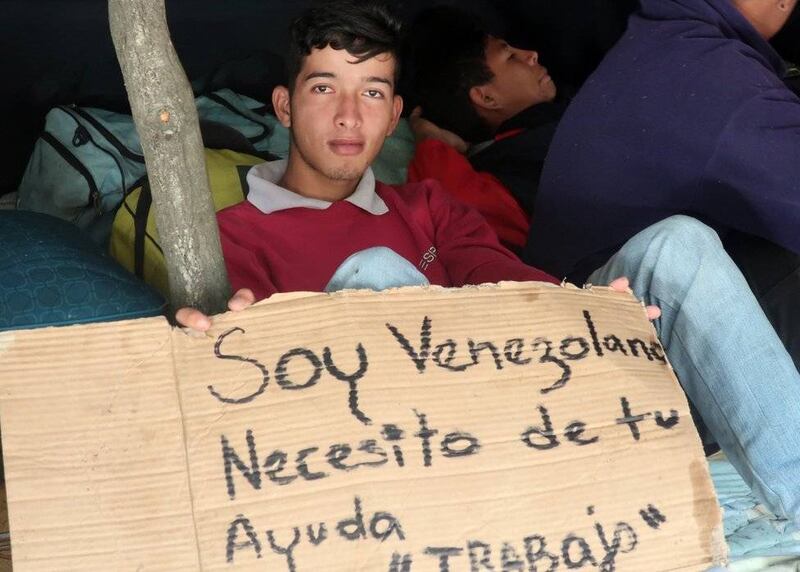 ESP
Soy Venezolano
Necesito de tu
Ayuda
"TRABAjo"